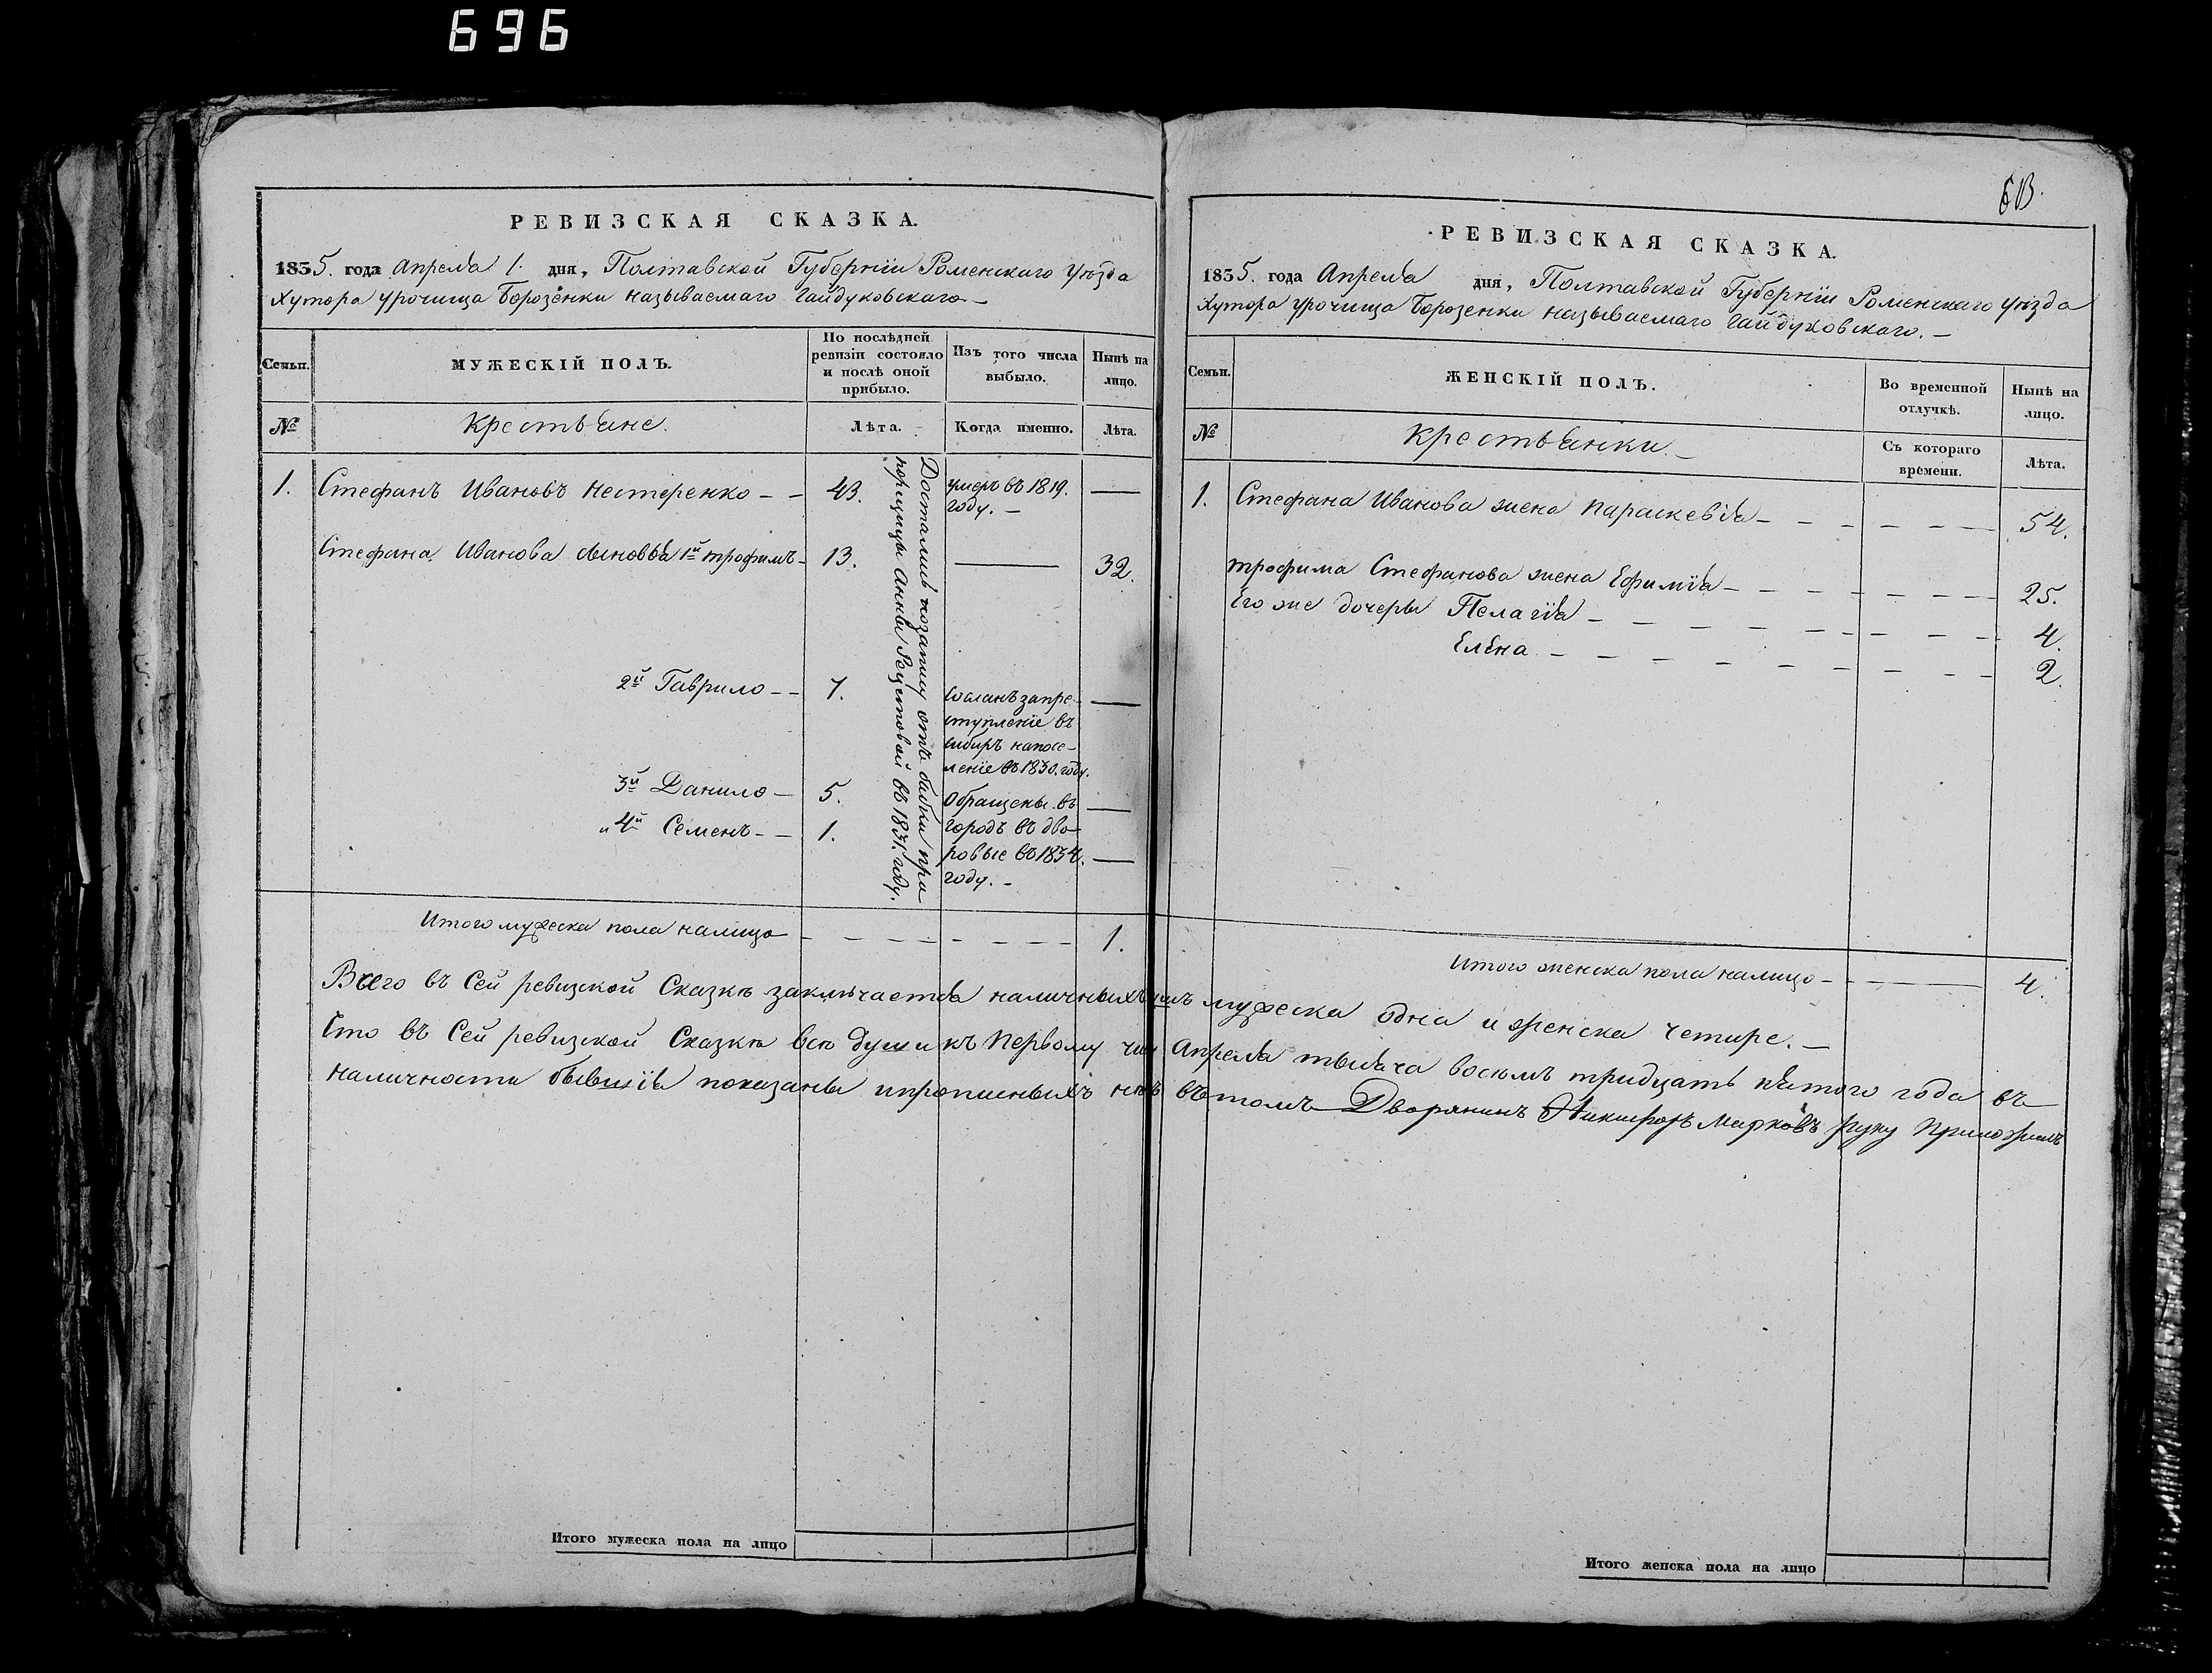 696
РЕВИЗСКАЯ СКАЗКА.
1835. года Апреля 1. дня, Полтавской Губернїи Роменскаго Уѣзда
Хутора урочища Борозенки называемаго Гайдуковскаго. —
Семьи. МУЖЕСКІЙ ПОЛЪ. По послѣдней ревизіи состояло и послѣ оной прибыло. Изъ того числа выбыло. Нынѣ на лицо.
№ Крестьяне. Лѣта. Когда именно. Лѣта.
1. Стефанъ Ивановъ Нестеренко — — 43. умеръ въ 1819. году. — —
Стефана Иванова сыновья 1й Трофимъ — 13. — 32.
2й Гаврило — — 7. Сосланъ за пре-
ступленїе въ
Сибирь на посе-
ленїе въ 1830. году. —
3й Данило — 5. Обращены въ —
и 4й Семенъ — — 1. городъ въ дво-
ровые въ 1834. —
году. —
Достались козатцу отъ бабки пра-
порщицы Анны въ 1831. году.
Итого мужеска пола налицо — — — — — — 1.
РЕВИЗСКАЯ СКАЗКА.
1835. года Апреля дня, Полтавской Губернїи Роменскаго Уѣзда
Хутора урочища Борозенки называемаго Гайдуковскаго. —
Семьи. ЖЕНСКІЙ ПОЛЪ. Во временной отлучкѣ. Нынѣ на лицо.
№ Крестьянки. — Съ котораго времени. Лѣта.
1. Стефана Иванова жена Параскевїя — — — — — 54.
Трофима Стефанова жена Ефимїя — — — — — — 25.
Его же дочеры Пелагїя — — — — — — — — 4.
Елена — — — — — — — — 2.
Итого женска пола налицо — — — — 4.
Всего въ Сей ревизской Сказкѣ заключается наличныхъ душъ мужеска одна и женска четире. —
Что въ Сей ревизской Сказкѣ всѣ души къ Первому чис Апреля тысяча восемъ тридцать пятого года въ
наличности бывшїя показаны и прописныхъ нѣтъ въ томъ Дворянинъ Никифоръ Марковъ руку Приложилъ
Итого мужеска пола на лицо
Итого женска пола на лицо